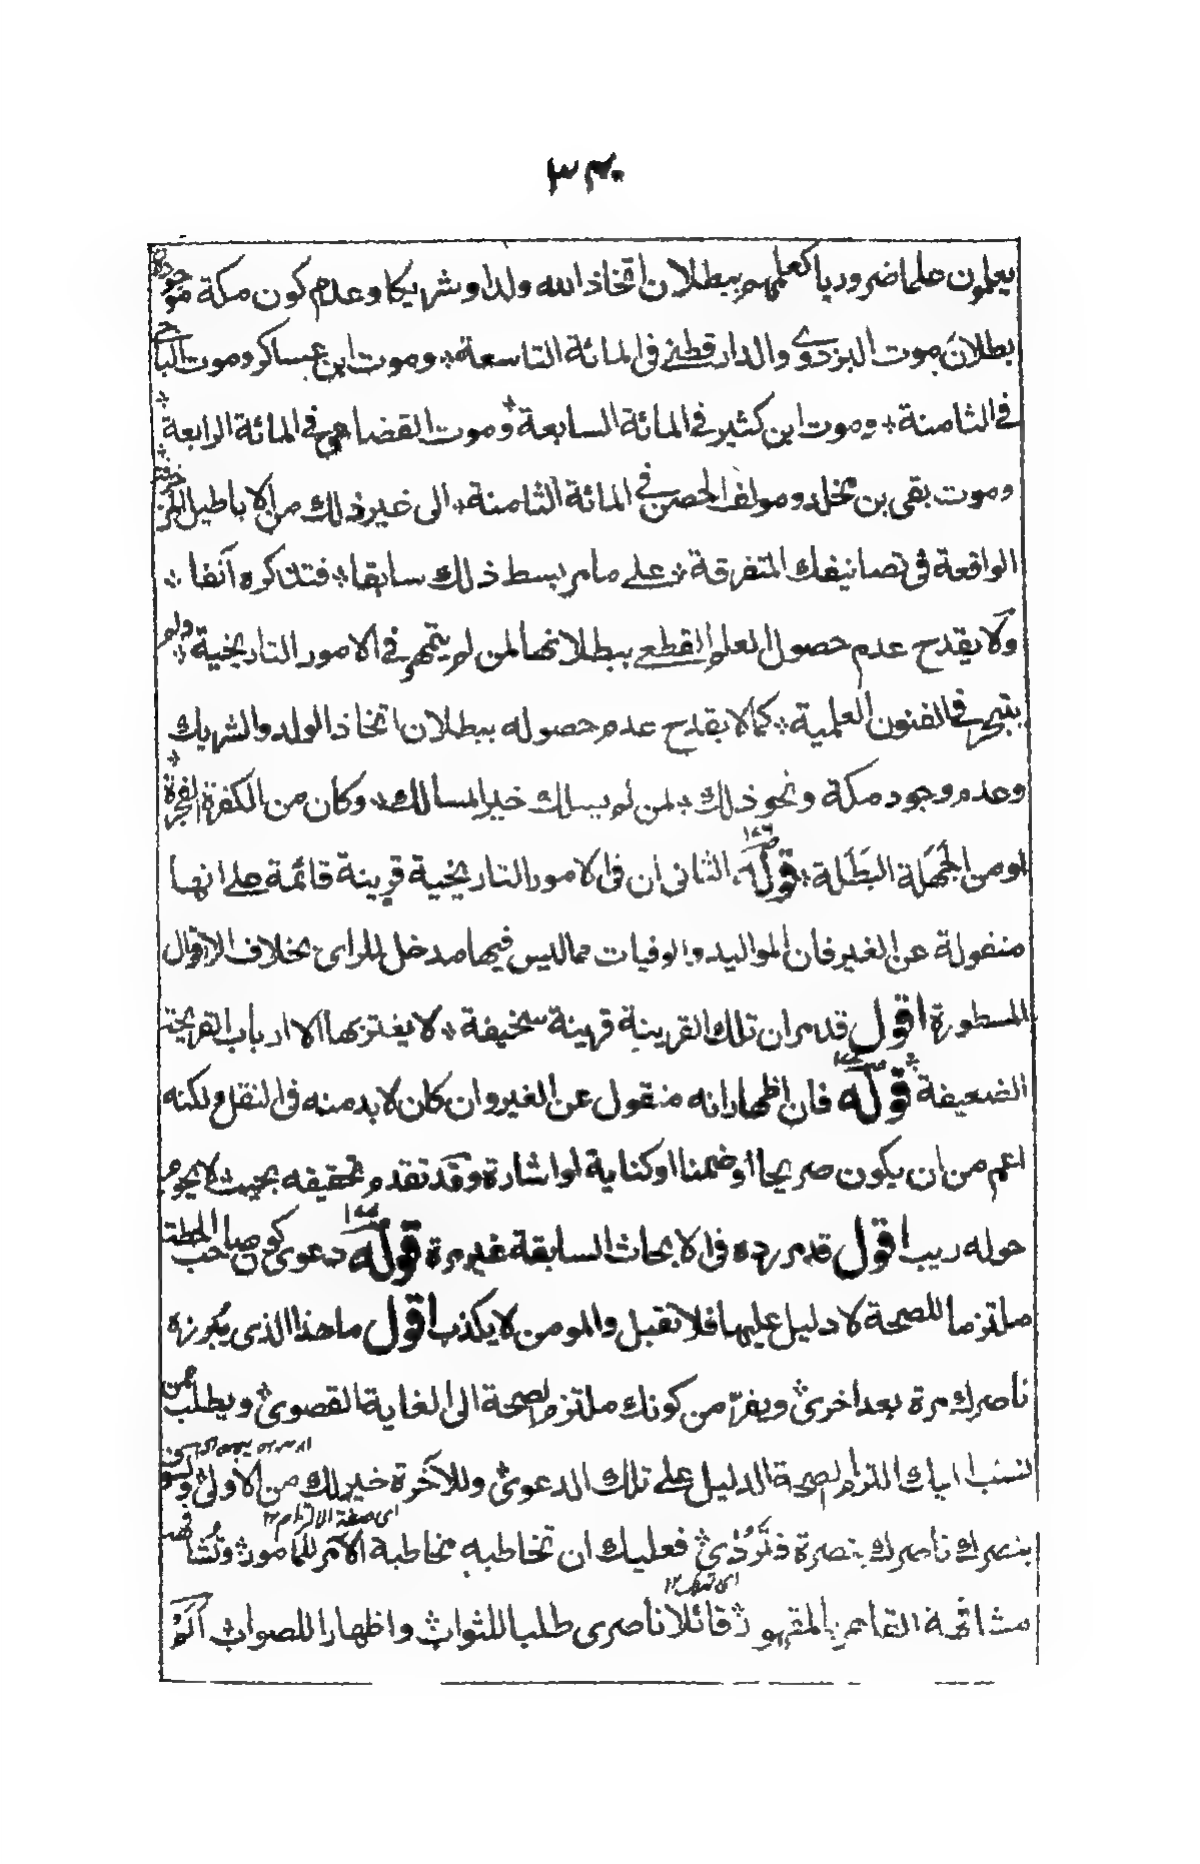 ٣٤٠
يعلمون علما ضروريا كعلمهم ببطلان اتخاذ الله ولدا وشريكا وعدم كون مكة موجودة
بطلان موت البزدوي والدارقطني في المائة التاسعة ٭ وموت ابن عساكر وموت الباجي
في الثامنة ٭ وموت ابن كثير في المائة السابعة ٭ وموت القضاعي في المائة الرابعة ٭
وموت بقي بن مخلد ومولف الحصن في المائة الثامنة ٭ الى غير ذلك من الاباطيل المزخرفة
الواقعة في تصانيفك المتفرقة ٭ على ما مر بسط ذلك سابقا ٭ فتذكره آنفا ٭
ولا يقدح عدم حصول العلم القطعي ببطلانها لمن لم يتمهر في الامور التاريخية ٭ ولم
يتبحر في الفنون العلمية ٭ كما لا يقدح عدم حصوله ببطلان اتخاذ الولد والشريك ٭
وعدم وجود مكة ونحو ذلك ٭ لمن لم يسلك خير المسالك ٭ وكان من الكفرة الفجرة
او من الجَهَلة البَطَلة ٭ قوله ١٤٦ الثاني ان في الامور التاريخية قرينة قائمة على انها
منقولة عن الغير فان المواليد والوفيات مما ليس فيها مدخل للراى بخلاف الاقوال
المسطورة اقول قد مر ان تلك القرينة قرينة سخيفة ٭ لا يغتر بها الا ارباب القريحة
الضعيفة ٭ قوله فان اظهار انه منقول عن الغير وان كان لا بد منه في النقل ولكنه
اعم من ان يكون صريحا او ضمنا او كناية او اشارة وقد تقدم تحقيقه بحيث لا يحوم
حوله ريب اقول قد مر رده في الابحاث السابقة غير مرة قوله دعوى كون صاحب الحطة
ملتزما للصحة لا دليل عليها فلا تقبل والمومن لا يكذب اقول ما هذا الذي يكرره
ناصرك مرة بعد اخرى ويفر من كونك ملتزم الصحة الى الغاية القصوى ويطلب ممن
نسب اليك التزام الصحة الدليل على تلك الدعوى وللآخرة خير لك من الاولى ولسوف
اى صفة الالتزام ١٢
ينصرك ناصرك بنصرة فتَرْدٰى فعليك ان تخاطبه مخاطبة الآمر للمامور وتُشافهه
مشافهة القاهر بالمقهور قائلا ناصرى طلبا للثواب واظهارا للصواب اَلَمْ